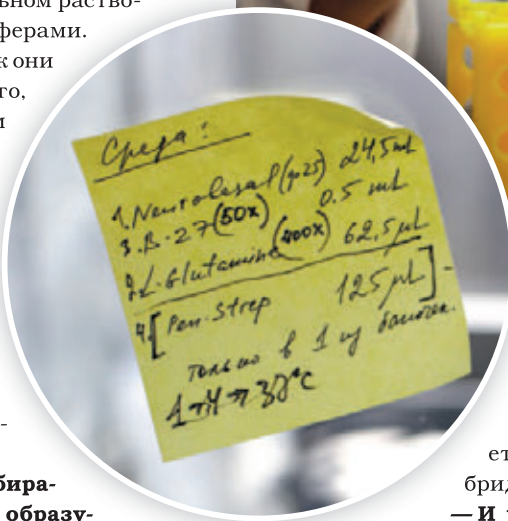 ьном раство-
ферами.
к они
го,
и
Среда:
1. Neurobasal (до 25) 24,5 mL
3. B-27 (50x) 0.5 mL
2. L-Glutamine (400x) 62,5 µL
4. [Pen-Strep 125 µL] -
только в 1 из баночек.
37°C
-
бира-
образу-
ет
брид
— И